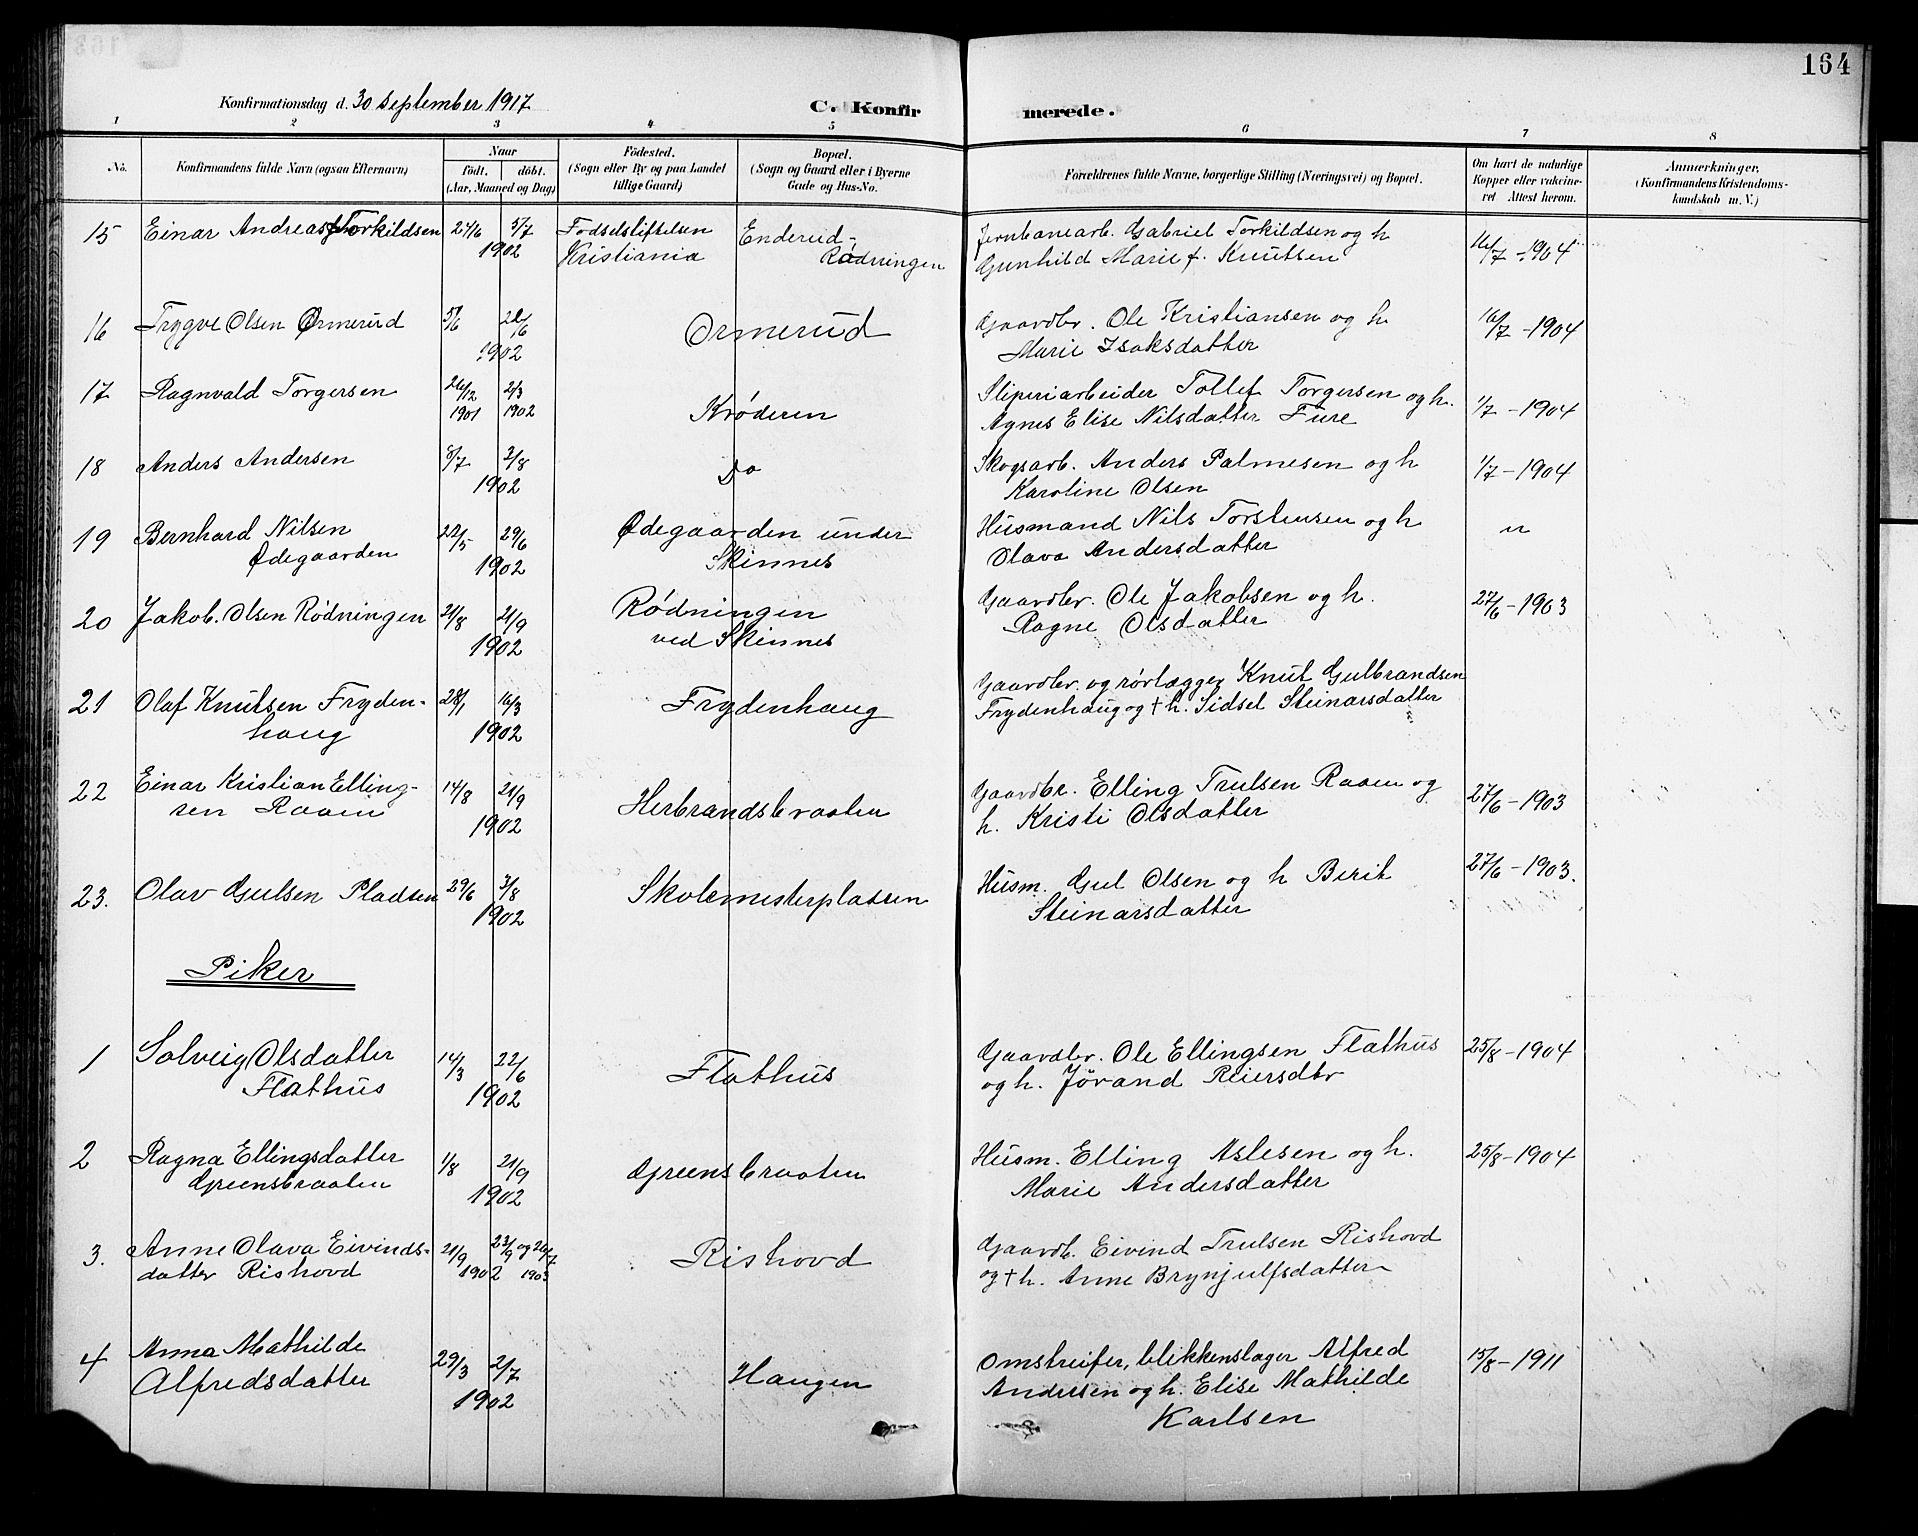 164
Konfirmationsdag d. 30 September 1917
C. Konfirmerede.
1 2 3 4 5 6 7 8
No.
Konfirmandens fulde Navn (ogsaa Efternavn)
Naar
født. døbt.
(Aar, Maaned og Dag)
Fødested.
(Sogn eller By og paa Landet
tillige Gaard)
Bopæl.
(Sogn og Gaard eller i Byerne
Gade og Hus-No.
Forældrenes fulde Navne, borgerlige Stilling (Næringsvei) og Bopæl.
Om havt de naturlige
Kopper eller vakcine-
ret Attest herom.
Anmærkninger,
(Konfirmandens Kristendoms-
kundskab m. V.)
15 Einar Andreas Torkildsen 24/6 5/7 Fødselstiftelsen Enderud- Jernbanearb. Gabriel Torkildsen og h 16/7 - 1904
1902 Kristiania Rødningen Gunhild Marie f. Knutsen
16 Trygve Olsen Ormerud 5/6 22/6 Ormerud Gaardbr. Ole Kristiansen og h 16/7 - 1904
1902 Marie Isaksdatter
17 Ragnvald Torgersen 26/12 2/3 Krøderen Sliperiarbeider Tollef Torgersen og h. 1/7 - 1904
1901 1902 Agnes Elise Nilsdatter Fure
18 Anders Andersen 8/7 3/8 Do Skogsarb. Anders Palmesen og h 1/7 - 1904
1902 Karoline Olsen
19 Bernhard Nilsen 22/5 29/6 Ødegaarden under Husmand Nils Torstensen og h "
Ødegaarden 1902 Skinnes Olava Andersdatter
20 Jakob. Olsen Rødningen 21/8 21/9 Rødningen Gaardbr. Ole Jakobsen og h. 27/6 - 1903
1902 ved Skinnes Ragne Olsdatter
21 Olaf Knutsen Fryden- 28/1 16/3 Frydenhaug Gaardbr. og rørlægger Knut Gulbrandsen
haug 1902 Frydenhaug og † h. Sidsel Steinarsdatter
22 Einar Kristian Elling- 14/8 21/9 Herbrandsbraaten Gaardbr. Elling Trulsen Raaen og 27/6 - 1903
sen Raaen 1902 h. Kristi Olsdatter
23. Olav Gulsen Pladsen 29/6 3/8 Skolemesterplassen Husm. Gul Olsen og h Berit 27/6 - 1903.
1902 Steinarsdatter
Piker
1 Solveig Olsdatter 14/3 22/6 Flathus Gaardbr. Ole Ellingsen Flathus 25/8 - 1904
Flathus 1902 og h. Jørand Reiersdtr
2 Ragna Ellingsdatter 1/8 21/9 Greensbraaten Husm. Elling Aslesen og h. 25/8 - 1904
Greensbraaten 1902 Marie Andersdatter
3. Anne Olava Eivinds- 21/9 23/9 og 26/7 Rishovd Gaardb. Eivind Trulsen Rishovd
datter Rishovd 1902 1903 og † h. Anne Brynjulfsdatter
4 Anna Mathilde 29/3 2/7 Haugen Omstreifer, blikkenslager Alfred 15/8 - 1911
Alfredsdatter 1902 Andersen og h. Elise Mathilde
Karlsen